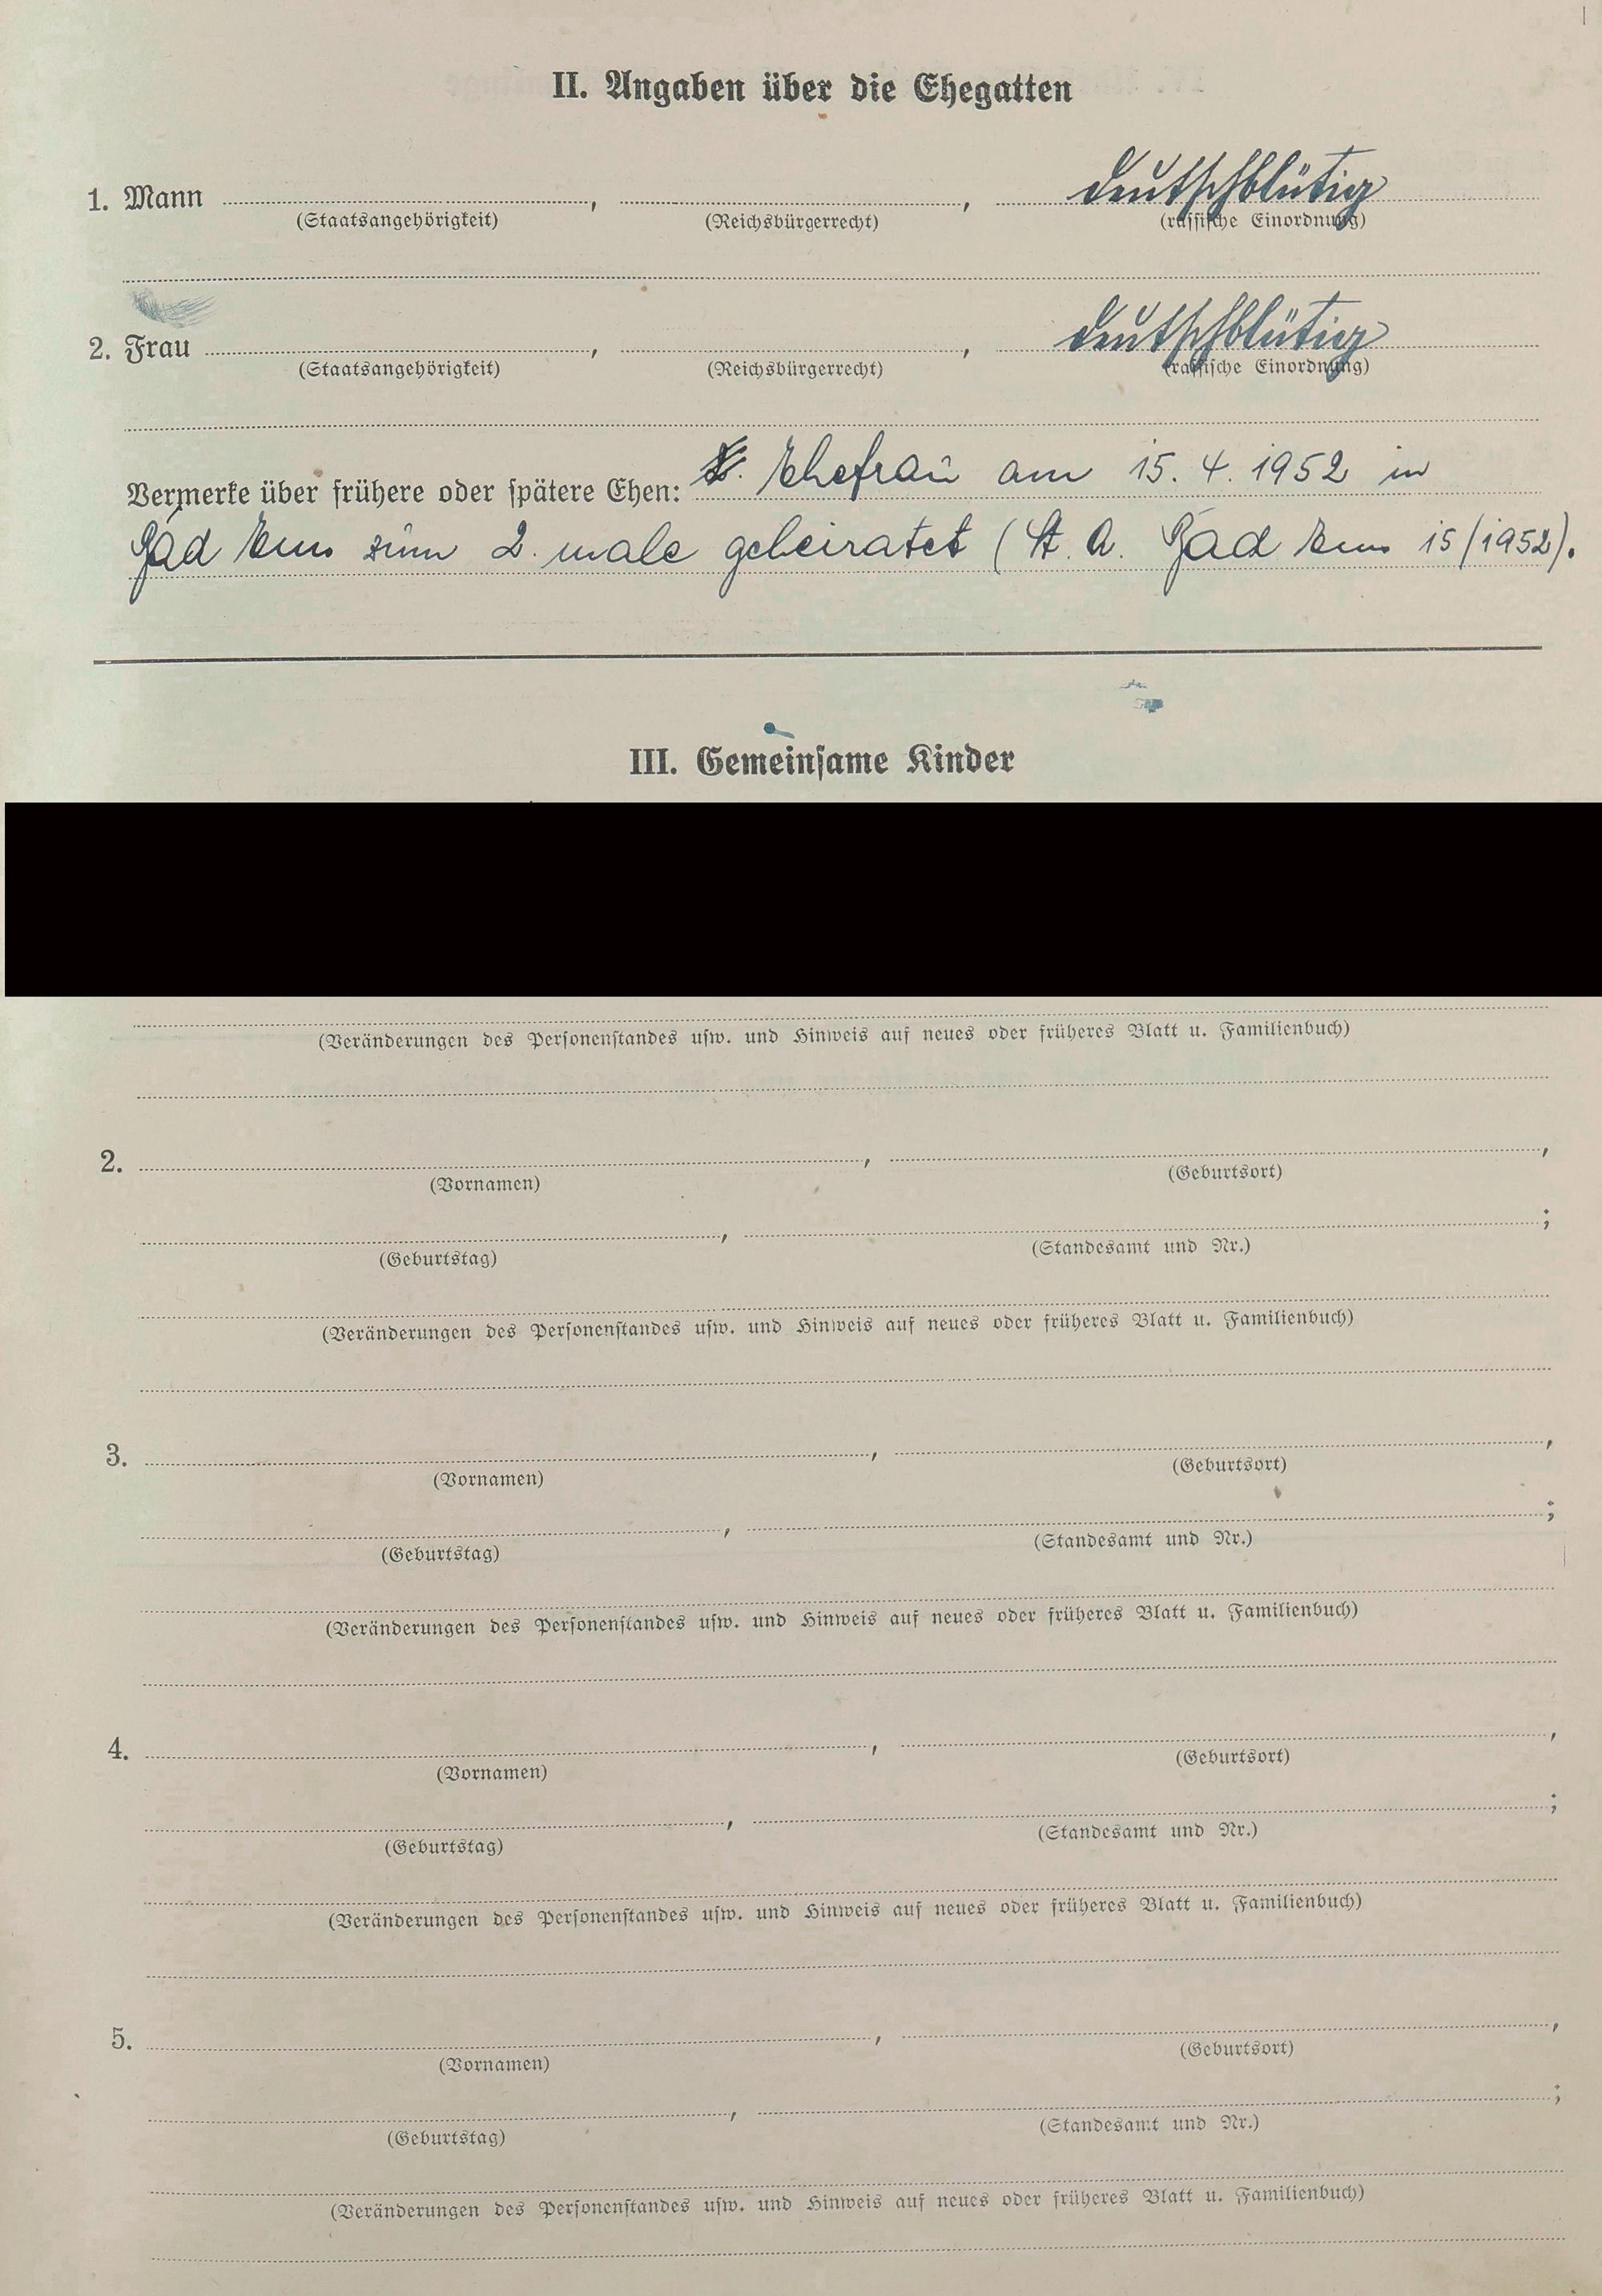 II. Angaben über die Ehegatten
1. Mann , , deutschblütig
(Staatsangehörigkeit) (Reichsbürgerrecht) (rassische Einordnung)
2. Frau , , deutschblütig
(Staatsangehörigkeit) (Reichsbürgerrecht) (rassische Einordnung)
Vermerke über frühere oder spätere Ehen: Ehefrau am 15. 4. 1952 in
Bad Ems zum 2. male geheiratet (St. A. Bad Ems 15/1952).
III. Gemeinsame Kinder
(Veränderungen des Personenstandes usw. und Hinweis auf neues oder früheres Blatt u. Familienbuch)
2. , ,
(Vornamen) (Geburtsort)
, ;
(Geburtstag) (Standesamt und Nr.)
(Veränderungen des Personenstandes usw. und Hinweis auf neues oder früheres Blatt u. Familienbuch)
3. , ,
(Vornamen) (Geburtsort)
, ;
(Geburtstag) (Standesamt und Nr.)
(Veränderungen des Personenstandes usw. und Hinweis auf neues oder früheres Blatt u. Familienbuch)
4. , ,
(Vornamen) (Geburtsort)
, ;
(Geburtstag) (Standesamt und Nr.)
(Veränderungen des Personenstandes usw. und Hinweis auf neues oder früheres Blatt u. Familienbuch)
5. , ,
(Vornamen) (Geburtsort)
, ;
(Geburtstag) (Standesamt und Nr.)
(Veränderungen des Personenstandes usw. und Hinweis auf neues oder früheres Blatt u. Familienbuch)